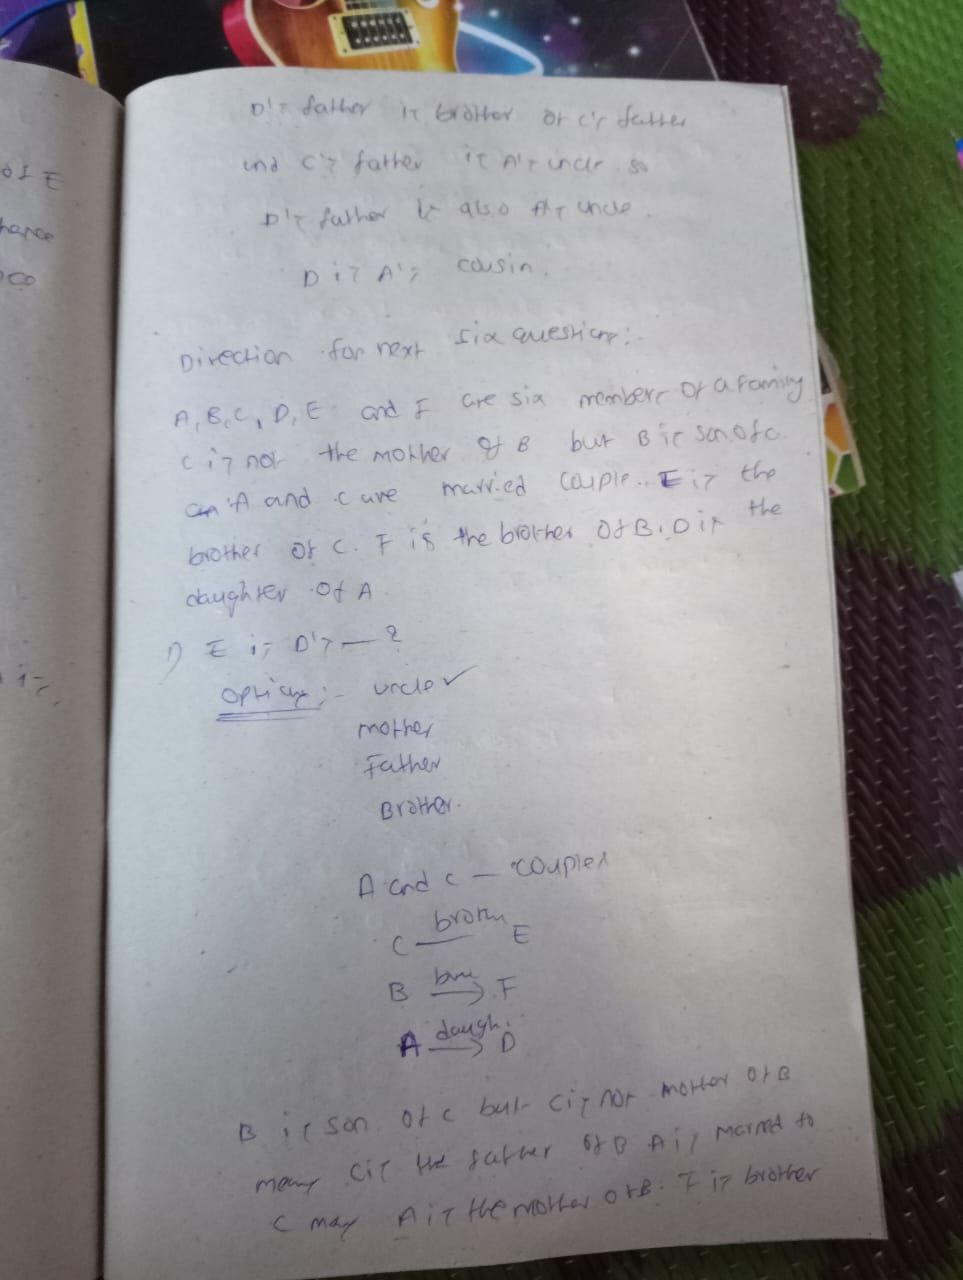 of E
D's father is brother of C's father
and C's father is A's uncle so
D's father is also A's uncle.
D is A's cousin.
Direction for next six questions:-
A, B, C, D, E and F are six members of a family
C is not the mother of B but B is son of C.
A and C are married couple. E is the
brother of C. F is the brother of B. D is the
daughter of A
1) E is D's — ?
Options:- uncle ✓
mother
Father
Brother.
A and C — couples
C broth E
B → F
A daugh. → D
B is son of C but C is not mother of B
means C is the father of B A is married to
C may A is the mother of B. F is brother